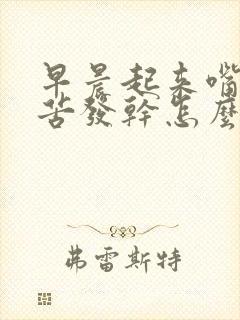 早晨起來嘴
苦發幹怎麼
弗雷斯特